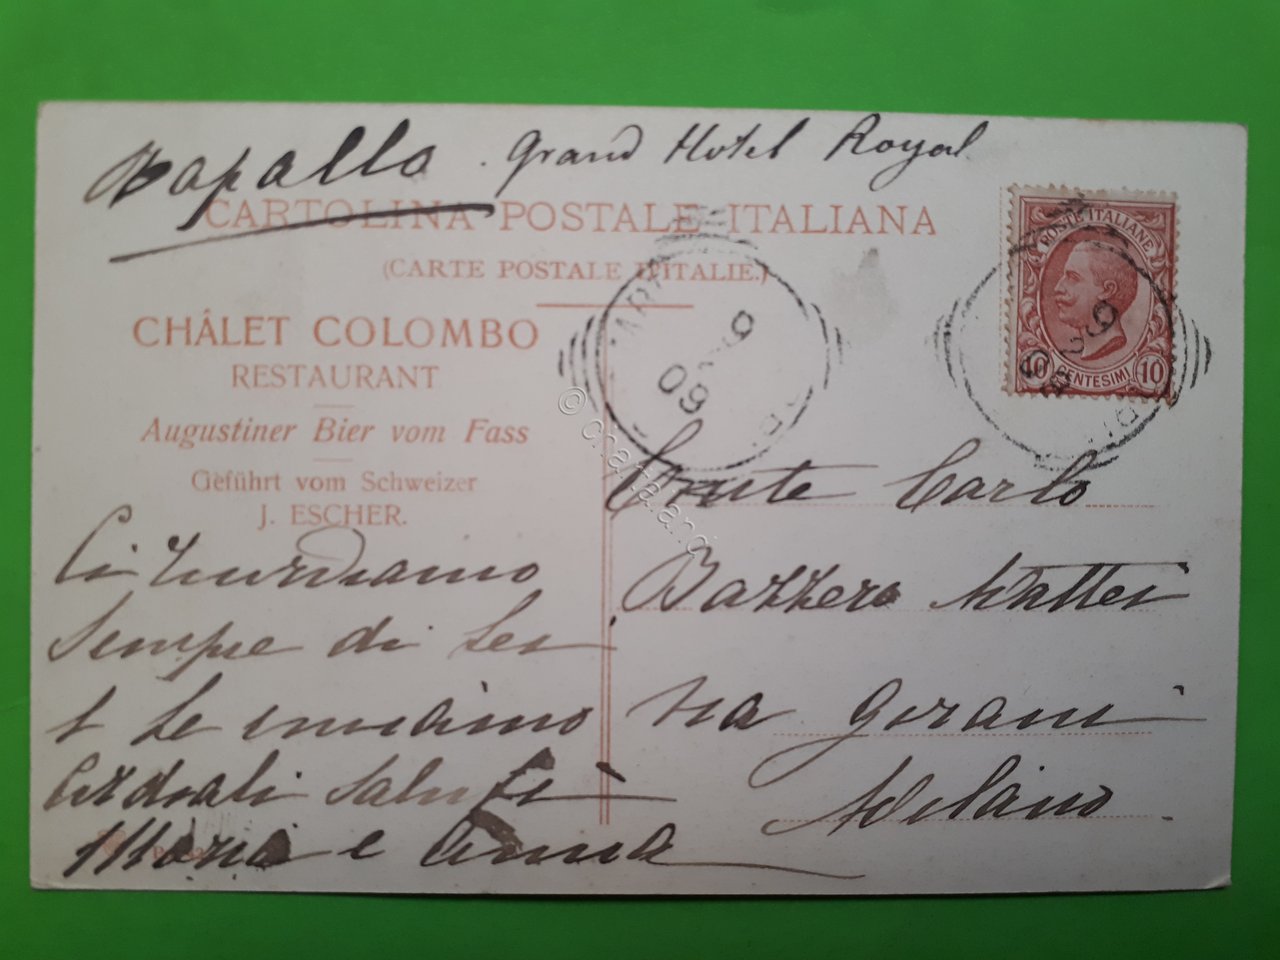 Rapallo. Grand Hotel Royal
CARTOLINA POSTALE ITALIANA
(CARTE POSTALE D'ITALIE.)
CHÂLET COLOMBO
RESTAURANT
Augustiner Bier vom Fass
Geführt vom Schweizer
J. ESCHER.
Ci ricordiamo
sempre di Lei
e Le inviamo
cordiali saluti
Maria e Anna
POSTE ITALIANE
10 CENTESIMI 10
09
Conte Carlo
Bazzero Mattei
Via Gorani
Milano